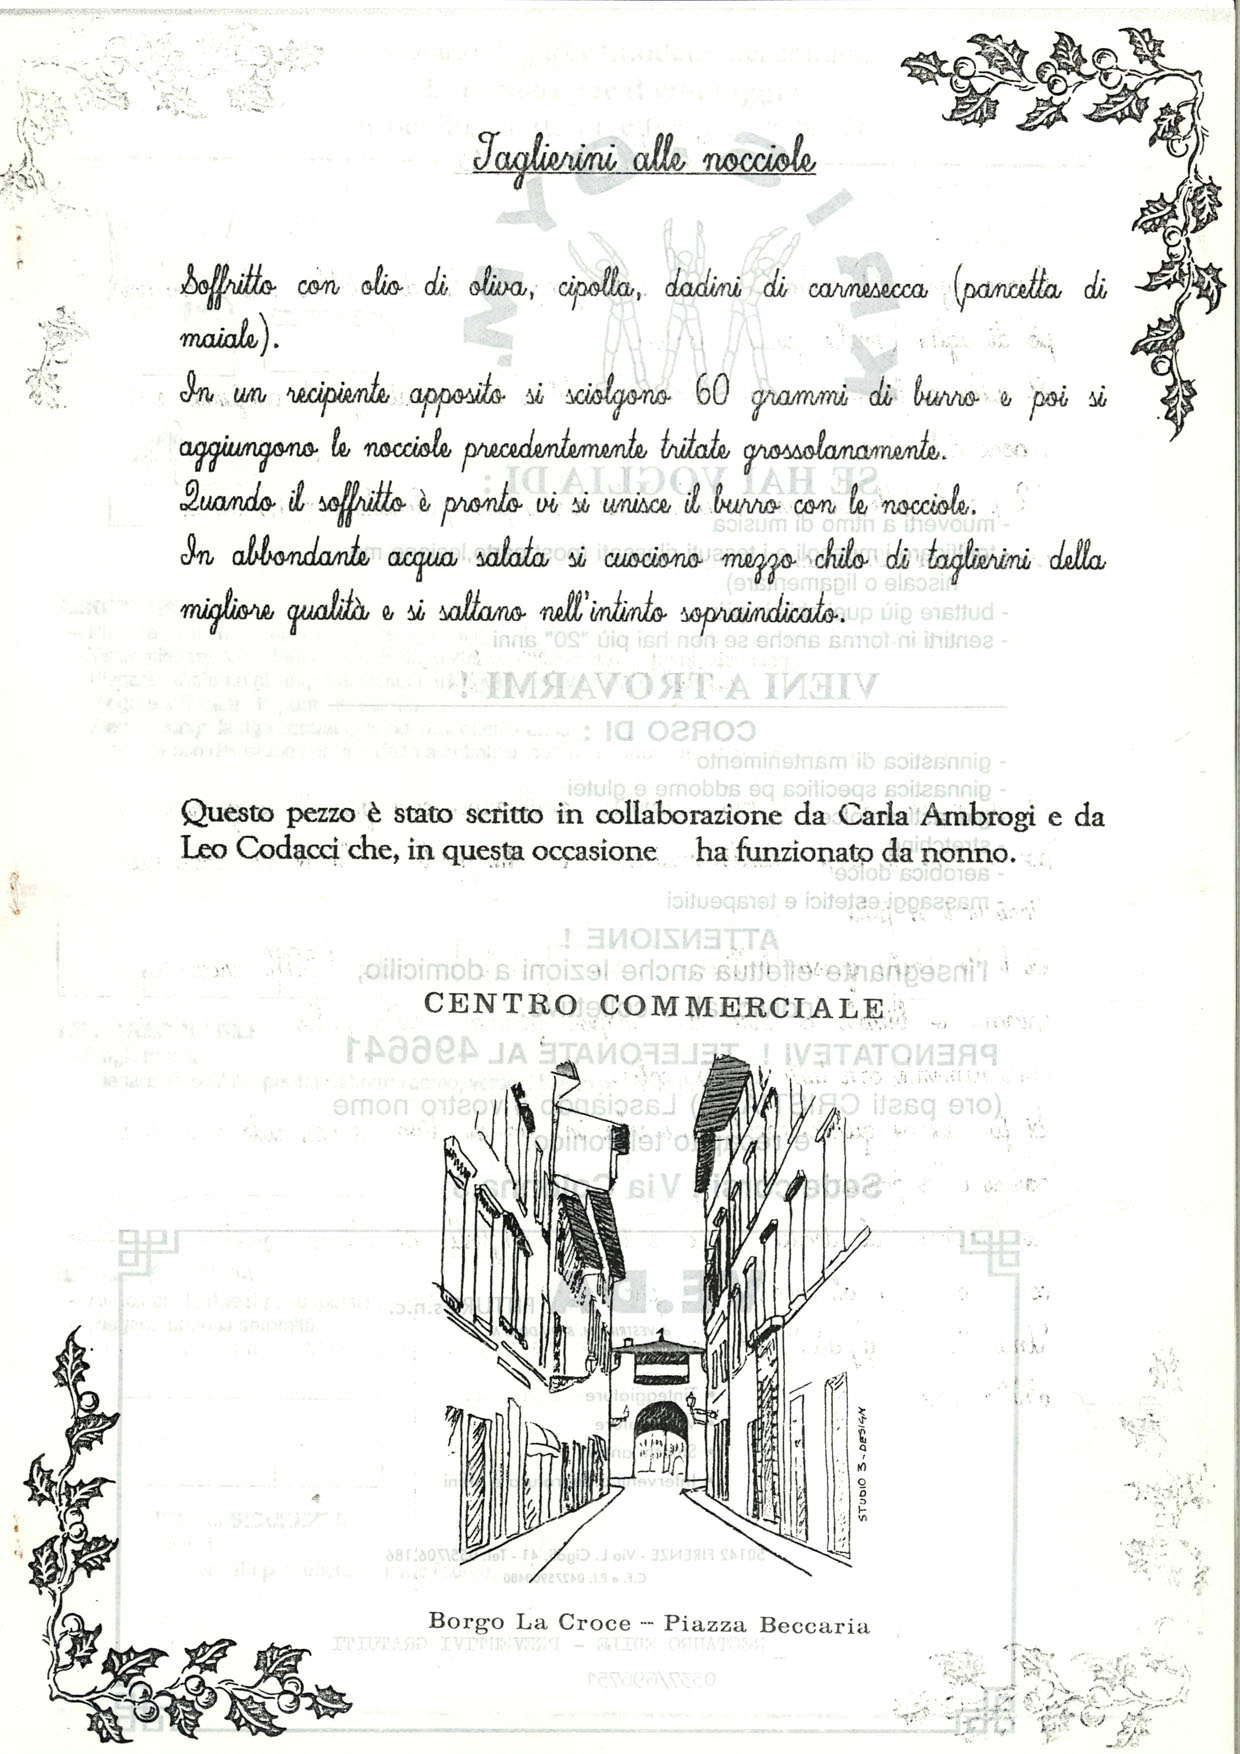 Taglierini alle nocciole
Soffritto con olio di oliva, cipolla, dadini di carnesecca (pancetta di
maiale).
In un recipiente apposito si sciolgono 60 grammi di burro e poi si
aggiungono le nocciole precedentemente tritate grossolanamente.
Quando il soffritto è pronto vi si unisce il burro con le nocciole.
In abbondante acqua salata si cuociono mezzo chilo di taglierini della
migliore qualità e si saltano nell'intinto sopraindicato.
Questo pezzo è stato scritto in collaborazione da Carla Ambrogi e da
Leo Codacci che, in questa occasione ha funzionato da nonno.
CENTRO COMMERCIALE
STUDIO 3-DESIGN
Borgo La Croce - Piazza Beccaria